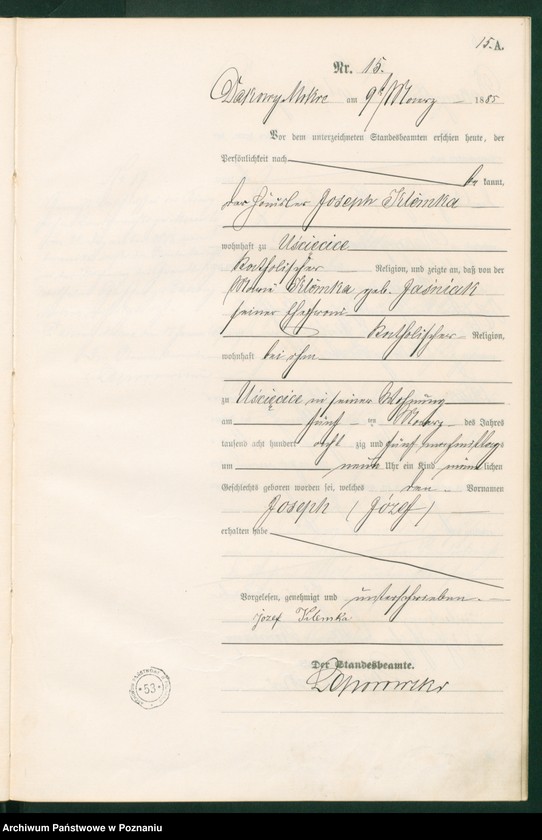 15. A.
Nr. 15.
Dakowy Mokre am 9ten Maerz 1885
Vor dem unterzeichneten Standesbeamten erschien heute, der
Persönlichkeit nach
be kannt,
der Häusler Joseph Klemka
wohnhaft zu Uścięcice
katholischer Religion, und zeigte an, daß von der
Klemka geb. Jaśniak
seiner Ehefrau
katholischer Religion,
wohnhaft bei ihm
zu Uścięcice in seiner Wohnung
am fünf ten Maerz des Jahres
tausend acht hundert acht zig und fünf nachmittags
um neun Uhr ein Kind männ lichen
Geschlechts geboren worden sei, welches den Vornamen
Joseph (Józef)
erhalten habe
Vorgelesen, genehmigt und unterschrieben.
Jozef Klemka
Der Standesbeamte.
53
Archiwum Państwowe w Poznaniu